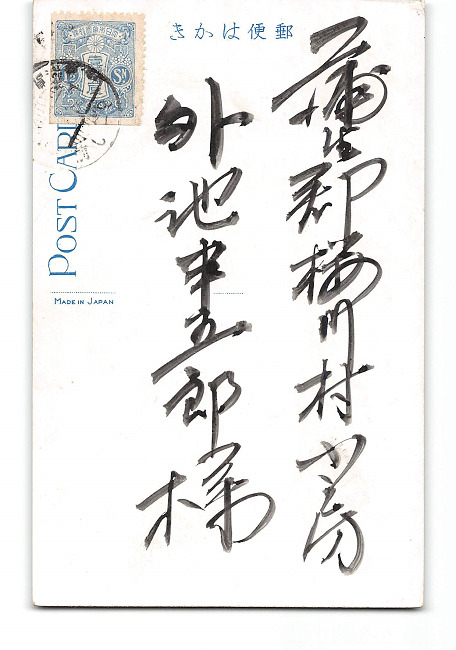 郵便はかき
蒲生郡桜川村小房
外池半五郎様
POST CARD
MADE IN JAPAN